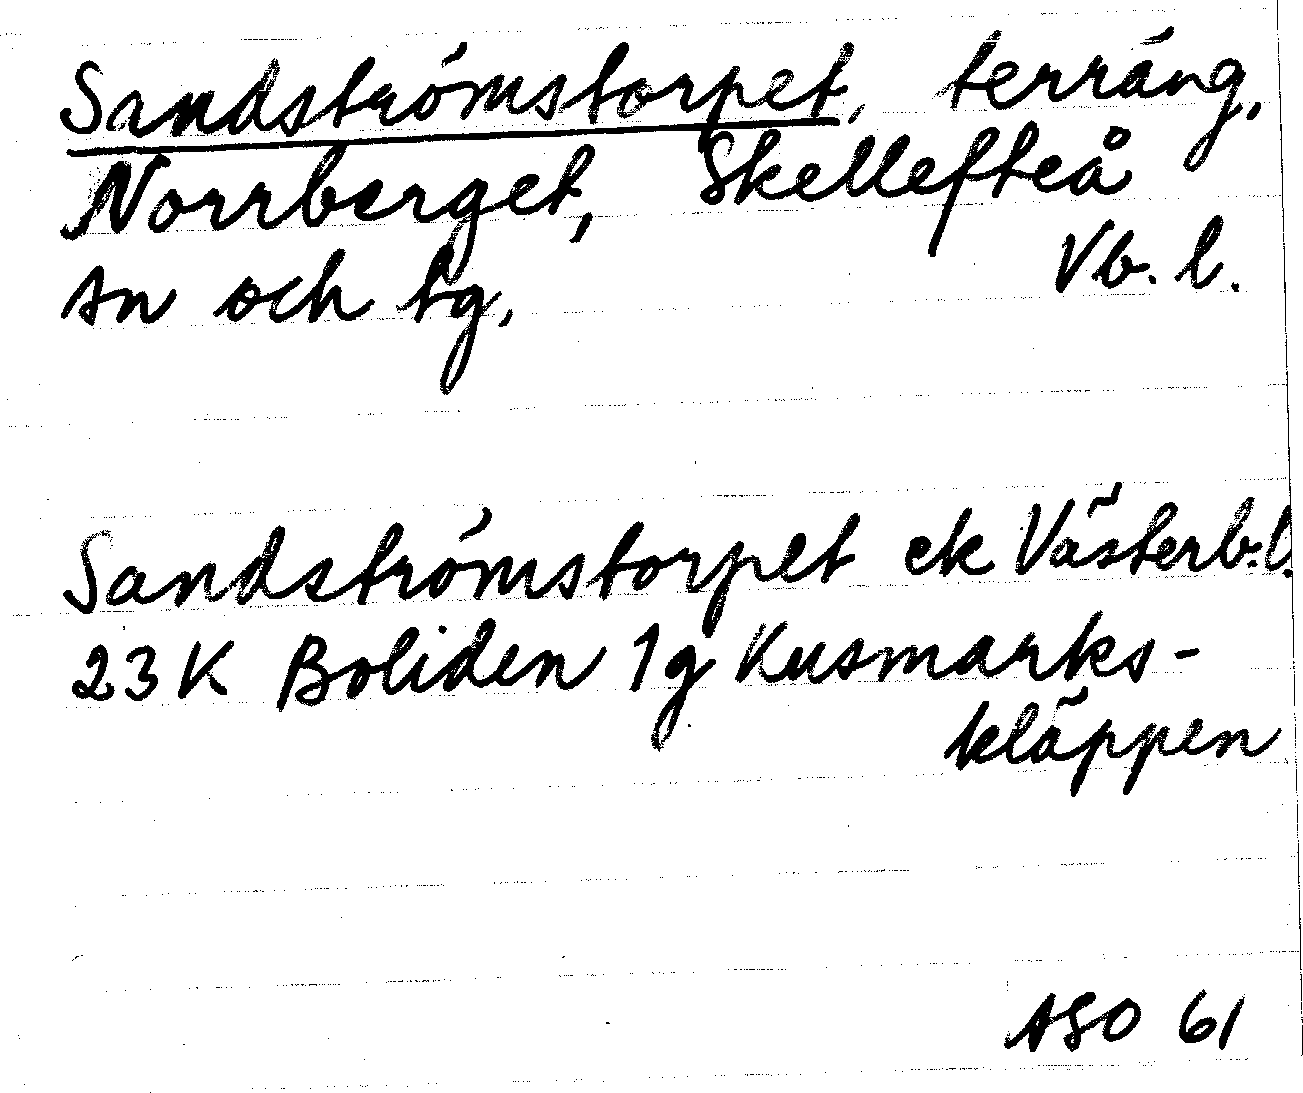 Sandströmstorpet, terräng,
Norrberget, Skellefteå
sn och tg, Vb. l.
Sandströmstorpet ek Västerb.l.
23K Boliden 1g Kusmarks-
kläppen
ASO 61